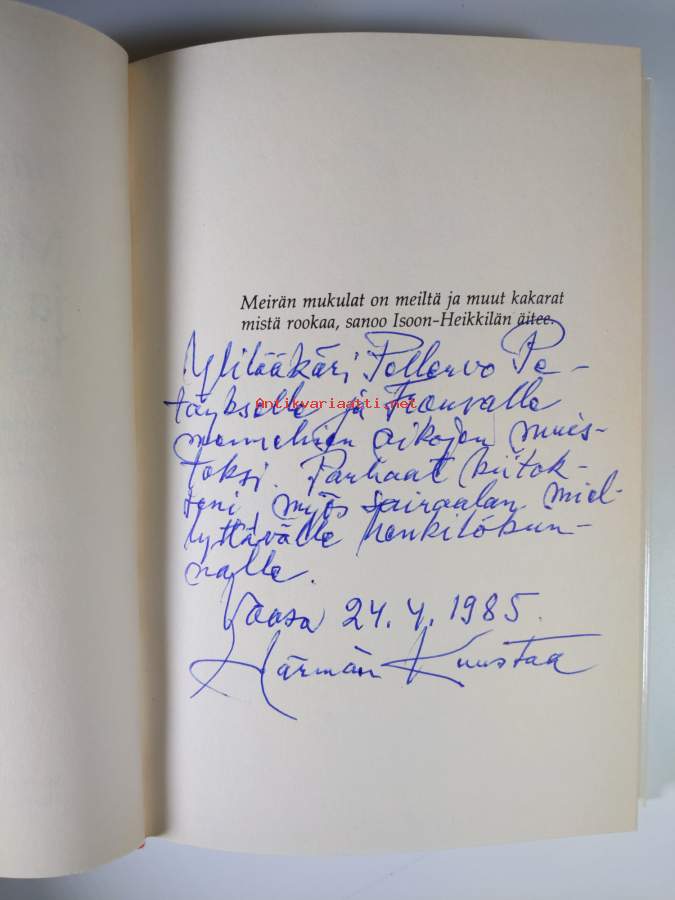 Meirän mukulat on meiltä ja muut kakarat
mistä rookaa, sanoo Isoon-Heikkilän äitee.
Ylilääkäri Pellervo Pe-
täykselle ja Frouvalle
Antikvariaatti.net
mennehien aikojen muis-
toksi. Parhaat kiitok-
seni, myös sairaalan miel-
lyttävälle henkilökun-
nalle.
Vaasa 24.4.1985.
Härmän Kuustaa